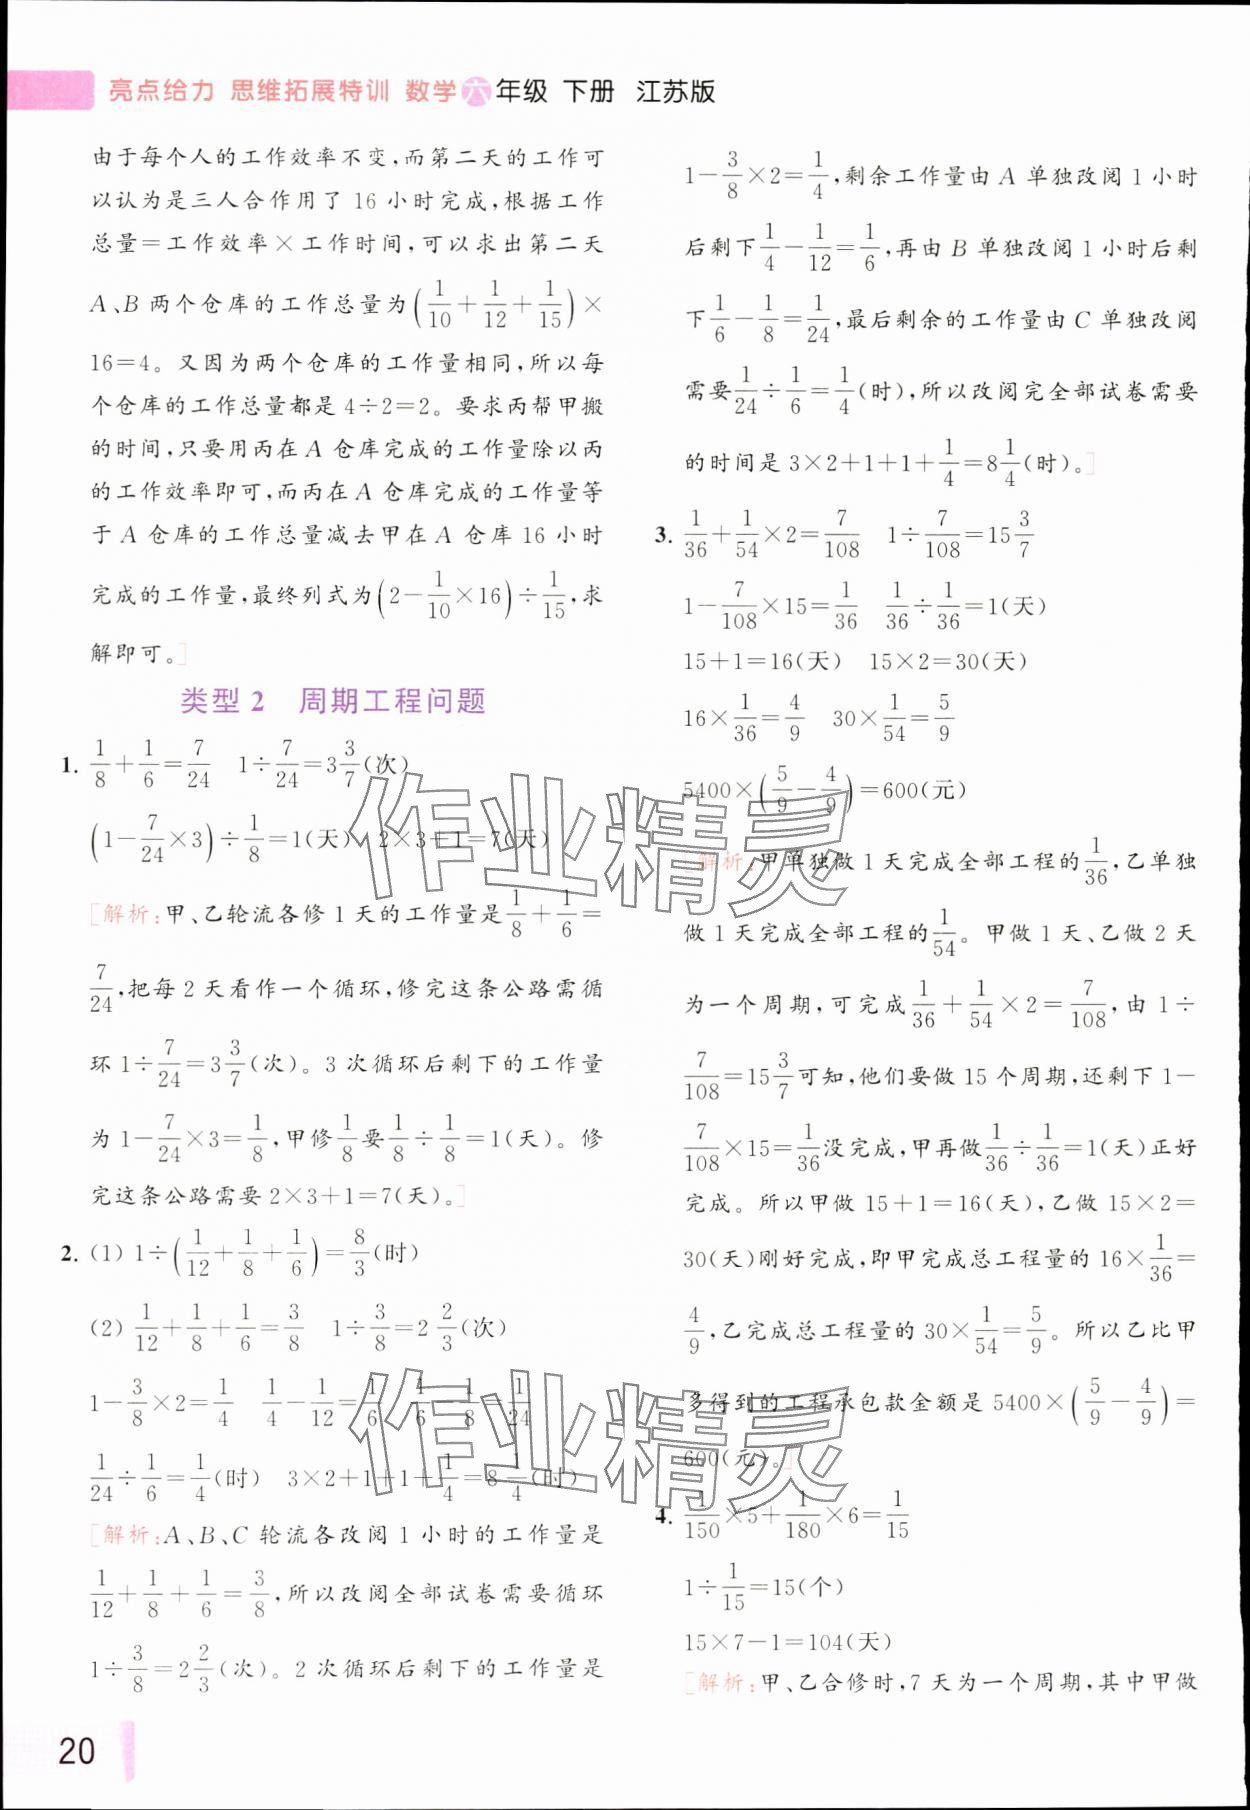 亮点给力 思维拓展特训 数学六年级 下册 江苏版
由于每个人的工作效率不变,而第二天的工作可
以认为是三人合作用了 16 小时完成,根据工作
总量=工作效率×工作时间,可以求出第二天
A、B 两个仓库的工作总量为(1/10+1/12+1/15)×
16=4。又因为两个仓库的工作量相同,所以每
个仓库的工作总量都是 4÷2=2。要求丙帮甲搬
的时间,只要用丙在 A 仓库完成的工作量除以丙
的工作效率即可,而丙在 A 仓库完成的工作量等
于 A 仓库的工作总量减去甲在 A 仓库 16 小时
完成的工作量,最终列式为(2-1/10×16)÷1/15,求
解即可。]
类型 2 周期工程问题
1. 1/8+1/6=7/24 1÷7/24=3 3/7(次)
(1-7/24×3)÷1/8=1(天) 2×3+1=7(天)
[解析:甲、乙轮流各修 1 天的工作量是1/8+1/6=
7/24,把每 2 天看作一个循环,修完这条公路需循
环 1÷7/24=3 3/7(次)。3 次循环后剩下的工作量
为 1-7/24×3=1/8,甲修1/8要1/8÷1/8=1(天)。修
完这条公路需要 2×3+1=7(天)。]
2. (1) 1÷(1/12+1/8+1/6)=8/3(时)
(2) 1/12+1/8+1/6=3/8 1÷3/8=2 2/3(次)
1-3/8×2=1/4 1/4-1/12=1/6 1/6-1/8=1/24
1/24÷1/6=1/4(时) 3×2+1+1+1/4=8 1/4(时)
[解析:A、B、C 轮流各改阅 1 小时的工作量是
1/12+1/8+1/6=3/8,所以改阅全部试卷需要循环
1÷3/8=2 2/3(次)。2 次循环后剩下的工作量是
1-3/8×2=1/4,剩余工作量由 A 单独改阅 1 小时
后剩下1/4-1/12=1/6,再由 B 单独改阅 1 小时后剩
下1/6-1/8=1/24,最后剩余的工作量由 C 单独改阅
需要1/24÷1/6=1/4(时),所以改阅完全部试卷需要
的时间是 3×2+1+1+1/4=8 1/4(时)。]
3. 1/36+1/54×2=7/108 1÷7/108=15 3/7
1-7/108×15=1/36 1/36÷1/36=1(天)
15+1=16(天) 15×2=30(天)
16×1/36=4/9 30×1/54=5/9
5400×(5/9-4/9)=600(元)
[解析:甲单独做 1 天完成全部工程的1/36,乙单独
做 1 天完成全部工程的1/54。甲做 1 天、乙做 2 天
为一个周期,可完成1/36+1/54×2=7/108,由 1÷
7/108=15 3/7可知,他们要做 15 个周期,还剩下 1-
7/108×15=1/36没完成,甲再做1/36÷1/36=1(天)正好
完成。所以甲做 15+1=16(天),乙做 15×2=
30(天)刚好完成,即甲完成总工程量的 16×1/36=
4/9,乙完成总工程量的 30×1/54=5/9。所以乙比甲
多得到的工程承包款金额是 5400×(5/9-4/9)=
600(元)。]
4. 1/150×5+1/180×6=1/15
1÷1/15=15(个)
15×7-1=104(天)
[解析:甲、乙合修时,7 天为一个周期,其中甲做
20
作业精灵
作业精灵